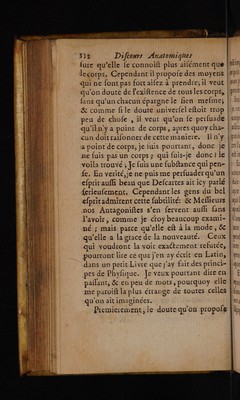 332 Discours Anatomiques
sure qu'elle se connoist plus aisément que
le corps. Cependant il propose des moyens
qui ne sont pas fort aisez à prendre, il veut
qu'on doute de l'existence de tous les corps,
sans qu'un chacun épargne le sien mesme;
& comme si le doute universel estoit trop
peu de chose, il veut qu'on se persuade
qu'il n'y a point de corps, aprés quoy cha-
cun doit raisonner de cette maniere. Il n'y
a point de corps, je suis pourtant, donc je
ne suis pas un corps; qui suis-je donc? le
voila trouvé, Je suis une substance qui pen-
se. En verité, je ne puis me persuader qu'un
esprit aussi beau que Descartes ait icy parlé
serieusement. Cependant les gens du bel
esprit admitent cette subtilité: & Messieurs
nos Antagonistes s'en servent aussi sans
l'avoir, comme je croy beaucoup exami-
né; mais parce qu'elle est à la mode, &
qu'elle a la grace de la nouveauté. Ceux
qui voudront la voir exactement refutée,
pourront lire ce que j'en ay écrit en Latin,
dans un petit Livre que j'ay fait des princi-
pes de Physique. Je veux pourtant dire en
passant, & en peu de mots, pourquoy elle
me paroist la plus étrange de toutes celles
qu'on ait imaginées.
Premierement, le doute qu'on propose